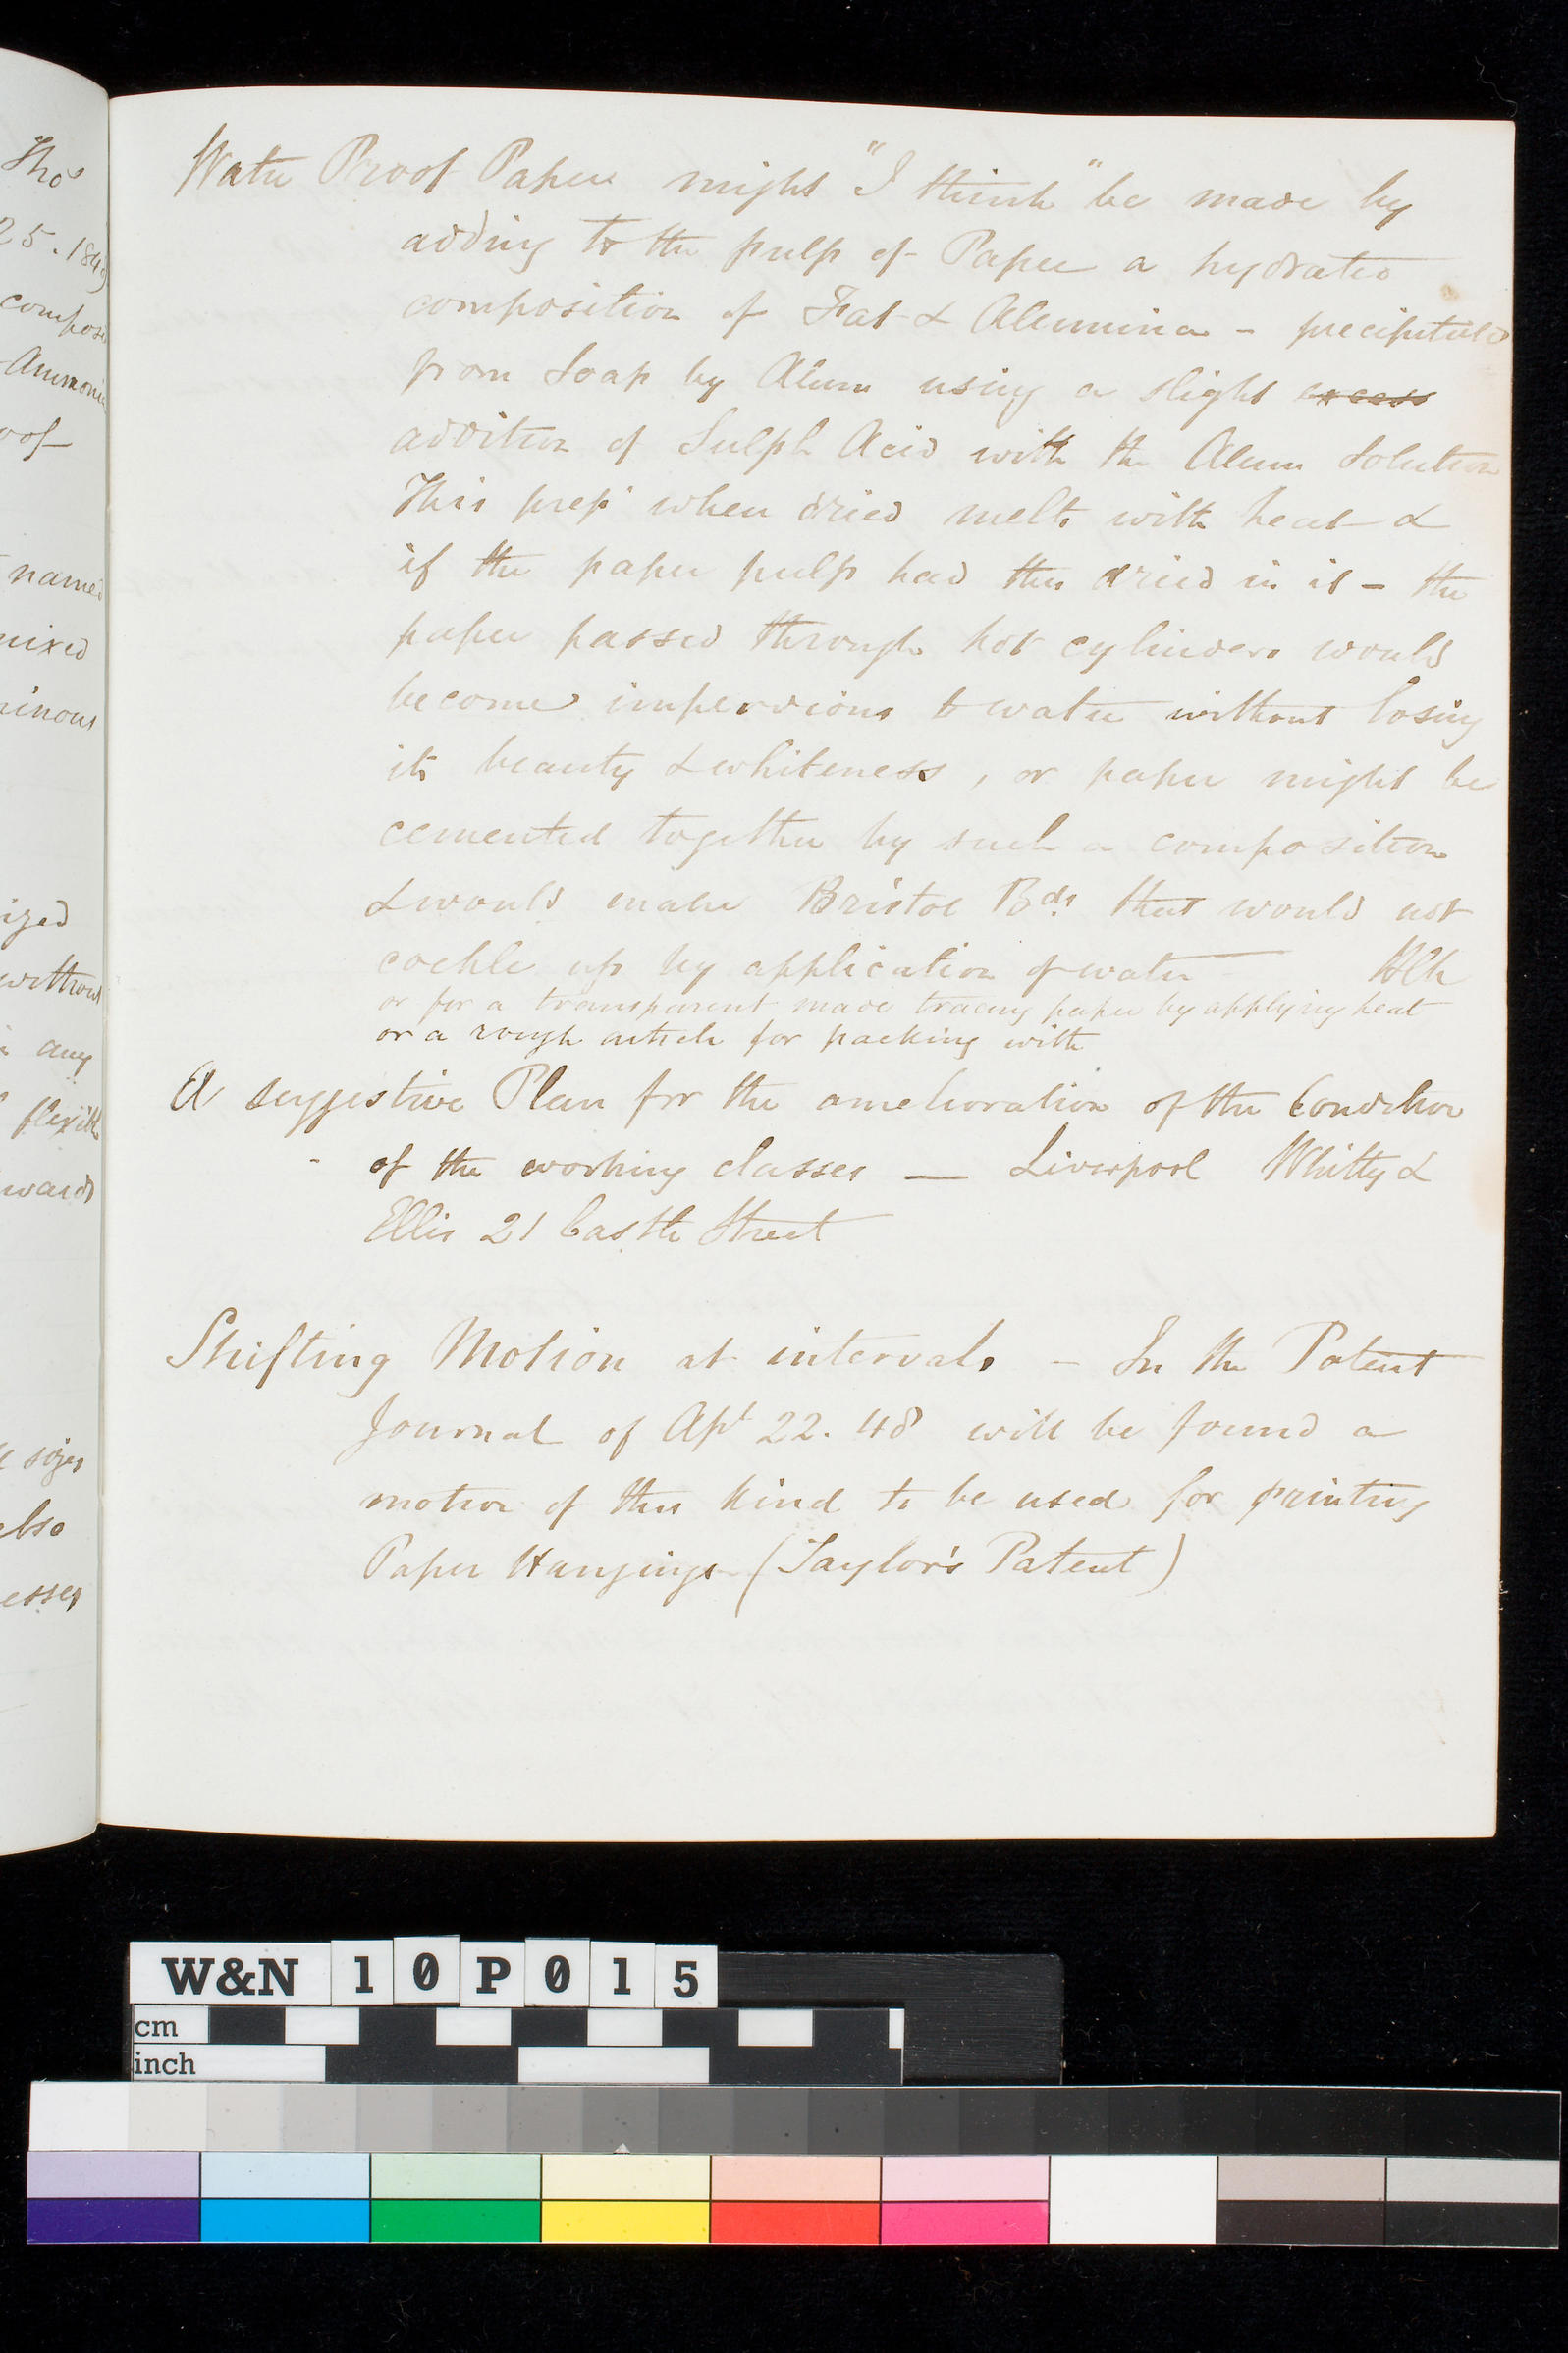 Thos
25. 1849
compos
Ammoni
oof
named
mixed
inous
ized
without
any
flexible
wards
sizes
also
esses
Water Proof Paper might "I think" be made by
adding to the pulp of Paper a hydrated
composition of Fat & Alumina - precipitated
from Soap by Alum using a slight excess
addition of Sulph Acid with the Alum Solution
This prepn when dried melts with heat &
if the paper pulp had this dried in it - the
paper passed through hot cylinders would
become impervious to water without losing
its beauty & whiteness, or paper might be
cemented together by such a composition
& would make Bristol Bds that would not
cockle up by application of water
or for a transparent made tracing paper by applying heat
or a rough article for packing with
A suggestive Plan for the amelioration of the Condition
of the working classes — Liverpool Whitty &
Ellis 21 Castle Street
Shifting Motion at intervals - In the Patent
Journal of Apl 22. 48 will be found a
motion of this kind to be used for printing
Paper Hangings (Taylor's Patent)
W&N 10P015
cm
inch